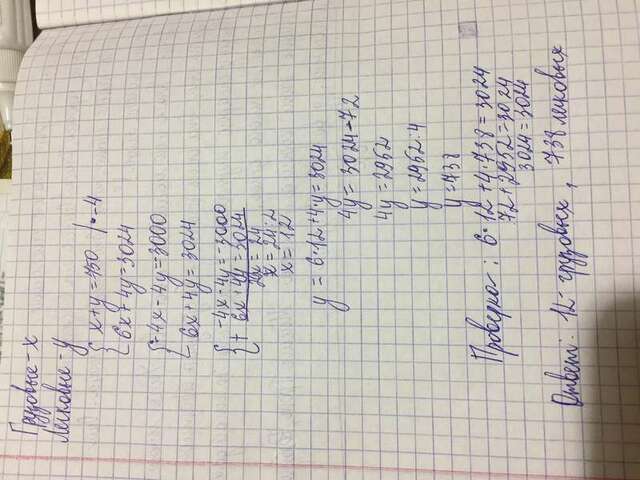 Грузовые - x
Легковые - y
{ x + y = 750 / · -4
6x + 4y = 3024
{ -4x - 4y = 3000
6x + 4y = 3024
{ + -4x - 4y = -3000
6x + 4y = 3024
2x = 24
x = 24 : 2
x = 12
y = 6 · 12 + 4 · y = 3024
4y = 3024 - 72
4y = 2952
y = 2952 : 4
y = 738
Проверка : 6 · 12 + 4 · 738 = 3024
72 + 2952 = 3024
3024 = 3024
Ответ: 12 - грузовых, 738 легковых